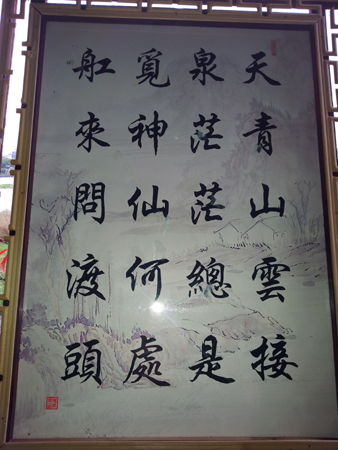 天青山雲接
泉茫茫總是
覓神仙何處
舡來問渡頭